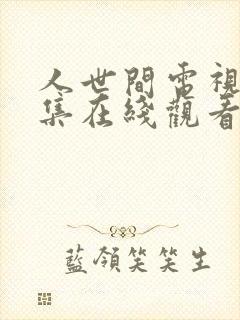 人世間電視
集在綫觀看
藍領笑笑生